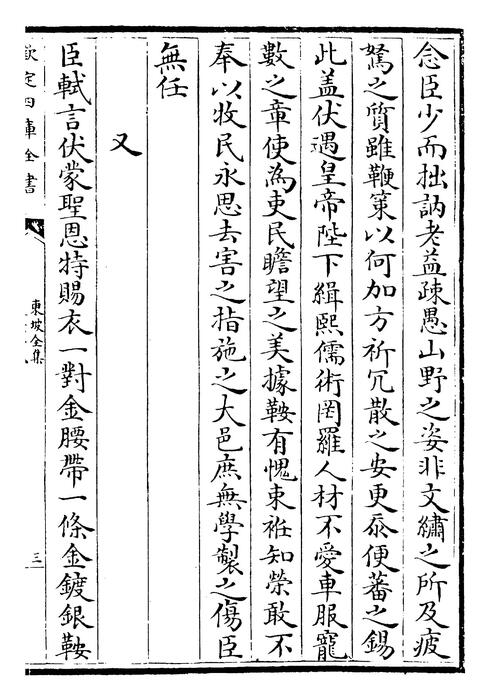 念臣少而拙訥老益疎愚山野之姿非文繡之所及疲
駑之質雖鞭策以何加方祈冗散之安更忝便蕃之錫
此盖伏遇皇帝陛下緝熙儒術罔羅人材不愛車服寵
數之章使為吏民瞻望之美據鞍有愧束袵知榮敢不
奉以牧民永思去害之指施之大邑庶無學製之傷臣
無任
又
臣軾言伏蒙聖恩特賜衣一對金腰帶一條金鍍銀鞍
欽定四庫全書
東坡全集
三